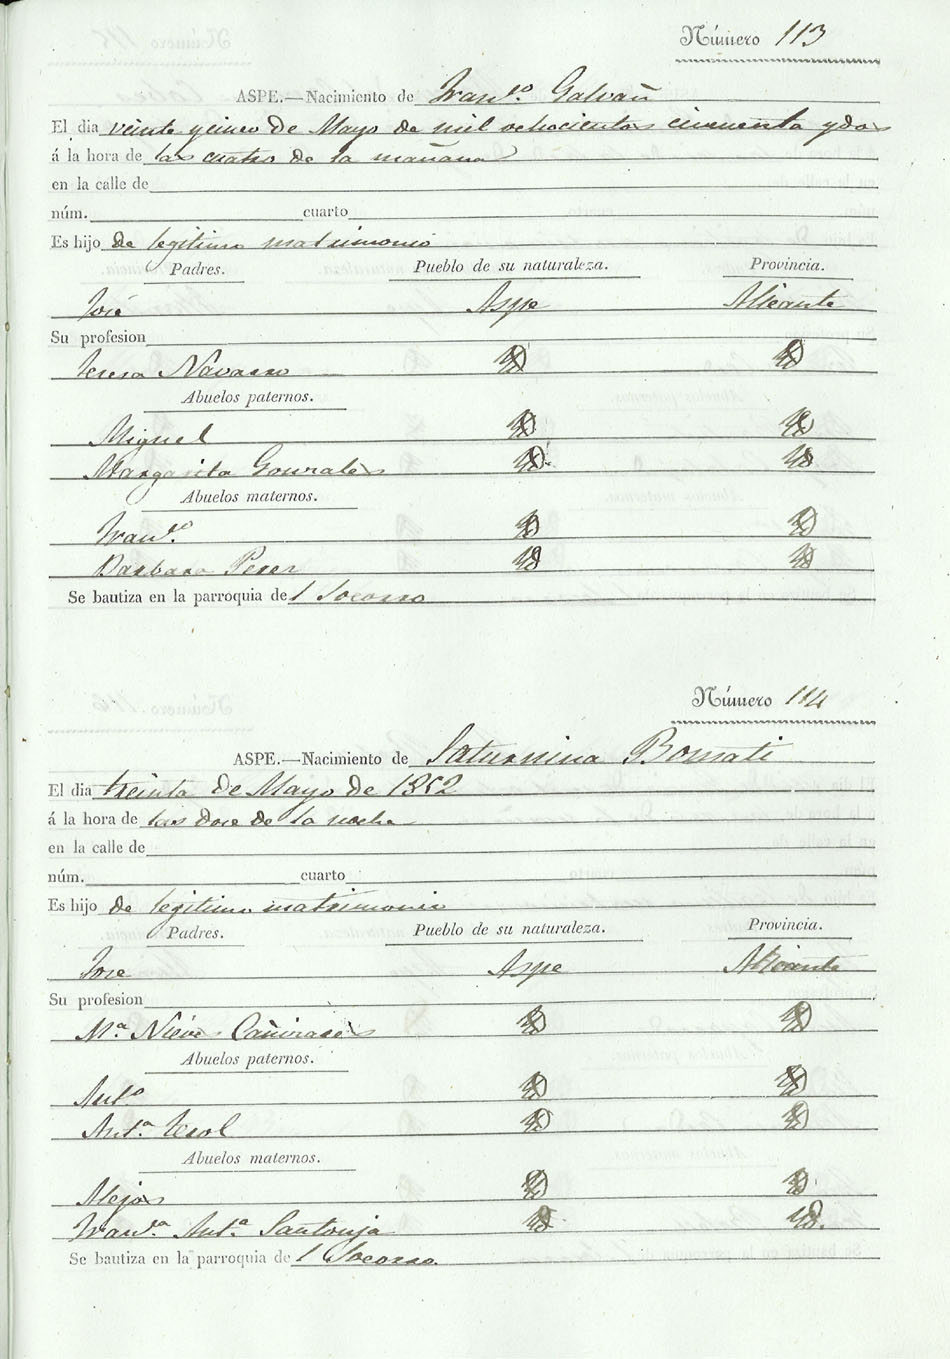 Número 113
ASPE.—Nacimiento de Franco. Galvañ
El dia veinte y cinco de Mayo de mil ochocientos cincuenta y dos
á la hora de las cuatro de la mañana
en la calle de
núm. cuarto
Es hijo de legitimo matrimonio
Padres. Pueblo de su naturaleza. Provincia.
José Aspe Alicante
Su profesion
Teresa Navarro
Abuelos paternos.
Miguel
Margarita Gonzales
Abuelos maternos.
Franco.
Barbara Perez
Se bautiza en la parroquia del Socorro
Número 114
ASPE.—Nacimiento de Saturnina Bonmati
El dia treinta de Mayo de 1852
á la hora de las doce de la noche
en la calle de
núm. cuarto
Es hijo de legitimo matrimonio
Padres. Pueblo de su naturaleza. Provincia.
Jose Aspe Alicante
Su profesion
Ma Nieves Cañizares
Abuelos paternos.
Anto
Anta. Terol
Abuelos maternos.
Alejos
Franca. Anta. Santonja
Se bautiza en la parroquia del Socorro.